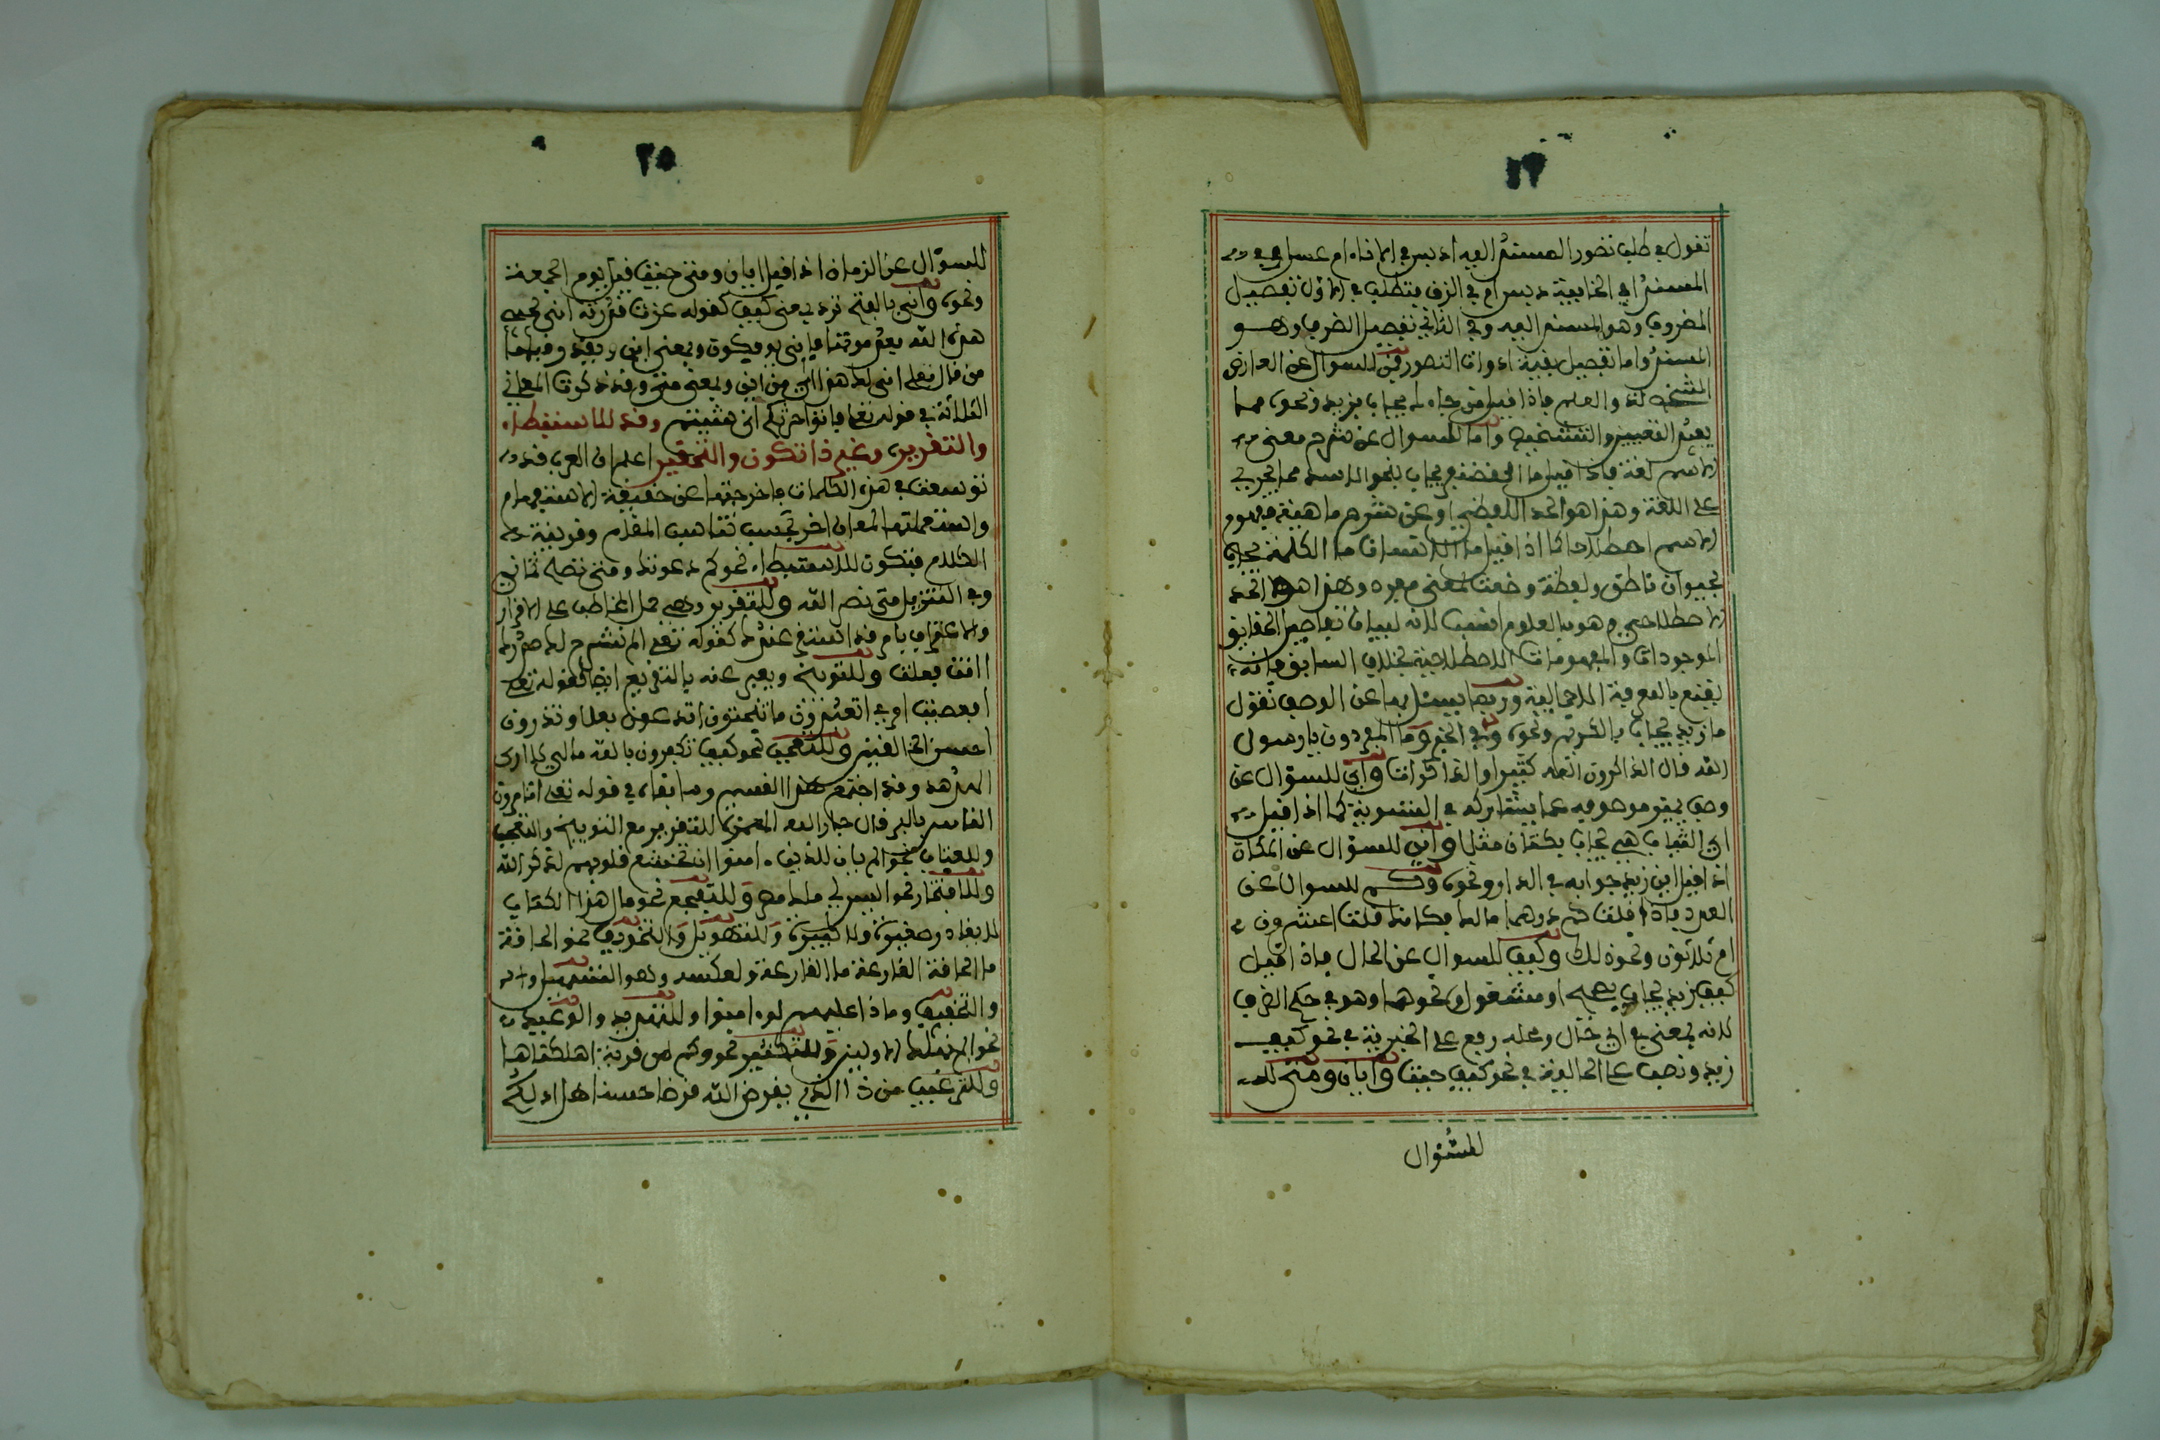 تقول في طلب تصور المسند اليه ادبس في الاناء ام عسل وفي
المسند افي الخابية دبس ام في الزق فتطلب في الاول تفصيل
المظروف وهو المسند اليه وفي الثاني تفصيل الظرف وهو
المسند واما تفصيل بقية ادوات التصور فمن للسوال عن العارض
المشخص لذي العلم فاذا قيل من جاء يجاب بزيد ونحوه مما
يفيد التعيين والتشخيص وما للسوال عن شرح معنى
الاسم لغة فاذا قيل ما الغضنفر يجاب بنحو الاسد مما يجري
على اللغة وهذا هو الحد اللفظي او عن شرح ماهية مفهوم
الاسم اصطلاحا كما اذا قيل ما الانسان ما الكلمة يجاب
بحيوان ناطق ولفظة وضعت لمعنى مفرد وهذا هو الحد
الاصطلاحي وهو بالعلوم انسب لانه لبيان تفاصيل الحقايق
الموجودات والمفهومات الاصطلاحية بخلاف السابق فانه
يقنع بالمعرفة الاجمالية وربما يسئل بما عن الوصف تقول
ما زيد يجاب بالكريم ونحوه وفي الخبر وما المفردون يا رسول
الله قال الذاكرون الله كثيرا والذاكرات واي للسؤال عن
وصف يميز موصوفه عما يشاركه في المنسوبية كما اذا قيل
اي الثياب هي يجاب بكتان مثلا واين للسؤال عن المكان
اذا قيل اين زيد جوابه في الدار ونحوه وكم للسوال عن
العدد فاذا قلت كم درهما مالك فكانك قلت اعشرون
ام ثلاثون ونحو ذلك وكيف للسوال عن الحال فاذا قيل
كيف زيد يجاب بصحيح او مشغول ونحوهما وهو في حكم الظرف
لانه بمعنى في اي حال ومحله رفع على الخبرية في نحو كيف
زيد ونصب على الحالية في نحو كيف جئت وايان ومتى
للسؤال
للسؤال عن الزمان اذا قيل ايان ومتى جئت قيل يوم الجمعة
ونحوه وانى بالفتح ترد بمعنى كيف كقوله عزت قدرته انى يحيي
هذه الله بعد موتها فانى يوفكون وبمعنى اين
من قال تعلى انى لك هذا اي من اين وبمعنى متى وقد ذكرت المعاني
الثلاثة في قوله تعلى فاتوا حرثكم انى شئتم وقد للاستبطاء
والتقرير وغير ذا تكون والتحقير اعلم ان العرب قد
توسعت في هذه الكلمات فاخرجتها عن حقيقة الاستفهام
واستعملتها لمعان اخر بحسب تناسب المقام وقرينة
الكلام فتكون للاستبطاء نحو كم دعوتك ومتى نصلح ثماني
وفي التنزيل متى نصر الله وللتقرير وهي حمل المخاطب على الاقرار
والاعتراف بامر قد استقر عنده كقوله تعلى الم نشرح لك صدرك
اانت فعلت وللتوبيخ ويعبر عنه بالتقريع ايضا كقوله تعلى
افعصيت امري اتعبدون ما تنحتون اتدعون بعلا وتذرون
احسن الخالقين وللتعجب نحو كيف تكفرون بالله مالي لا ارى
الهدهد وقد اجتمع هذا القسم وسابقاه في قوله تعلى اتامرون
الناس بالبر قال جار الله الهمزة للتقرير مع التوبيخ والتعجب
وللعتاب نحو الم يان للذين امنوا ان تخشع قلوبهم لذكر الله
وللافتخار نحو اليس لي ملك مصر وللتفجع نحو مال هذا الكتاب
لا يغادر صغيرة ولا كبيرة وللتهويل والتخويف نحو الحاقة
ما الحاقة القارعة ما القارعة ولعكسه وهو التسهيل
والتخفيف وماذا عليهم لو امنوا وللتهديد والوعيد
نحو الم نهلك الاولين وللتكثير نحو وكم من قرية اهلكناها
وللترغيب من ذا الذي يقرض الله قرضا حسنا هل ادلكم